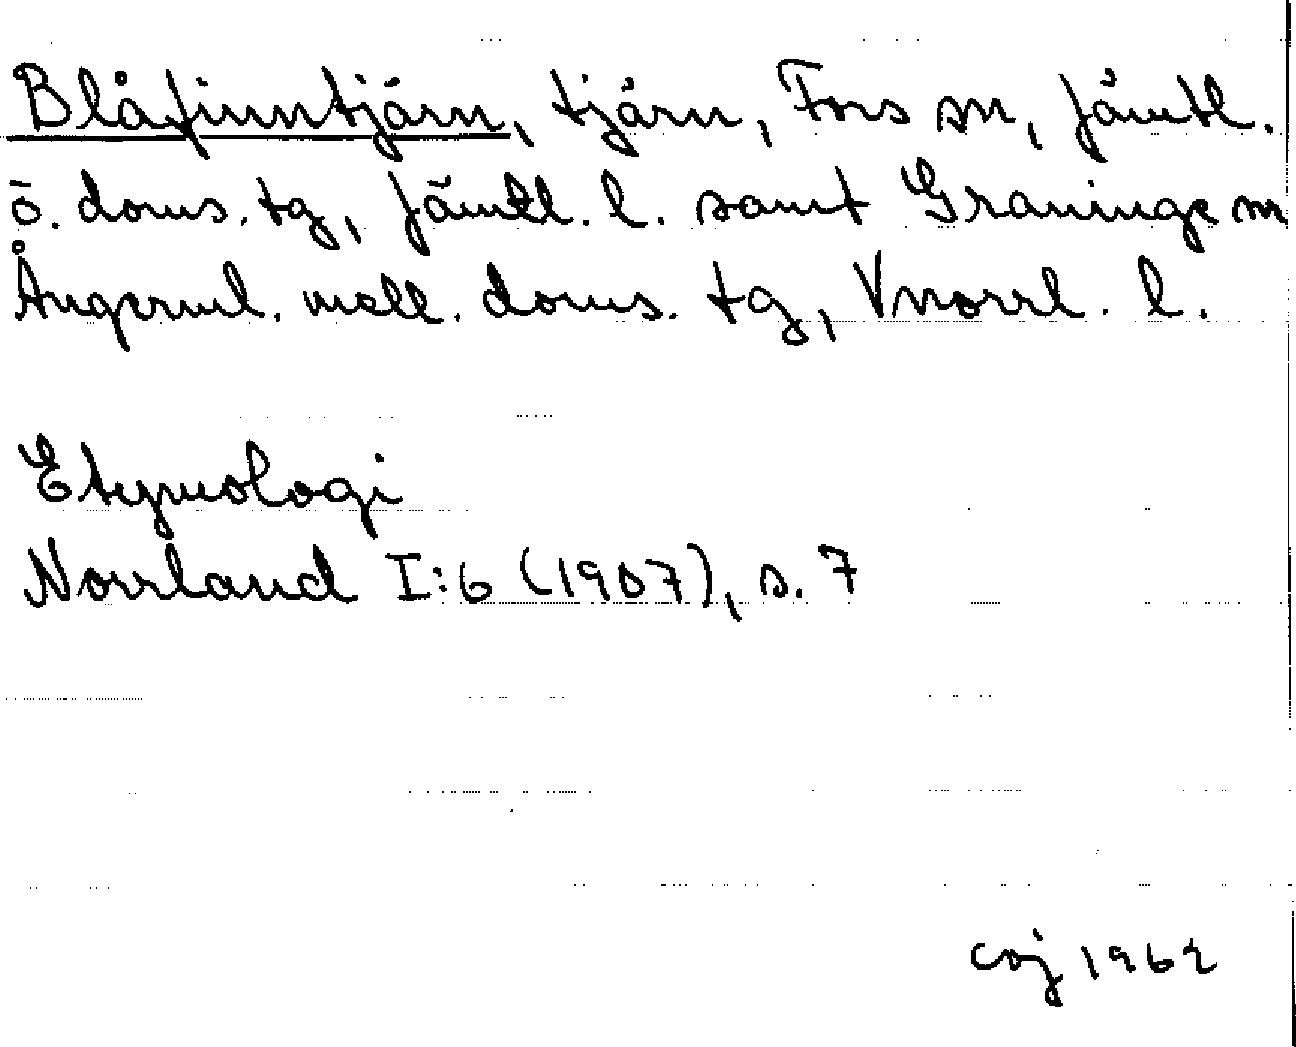 Blåfinntjärn, tjärn, Fors sn, Jämtl.
ö. doms. tg, Jämtl. l. samt Graninge sn
Ångerml. mell. doms. tg, Vnorrl. l.
Etymologi
Norrland I:6 (1907), s. 7
coj 1962